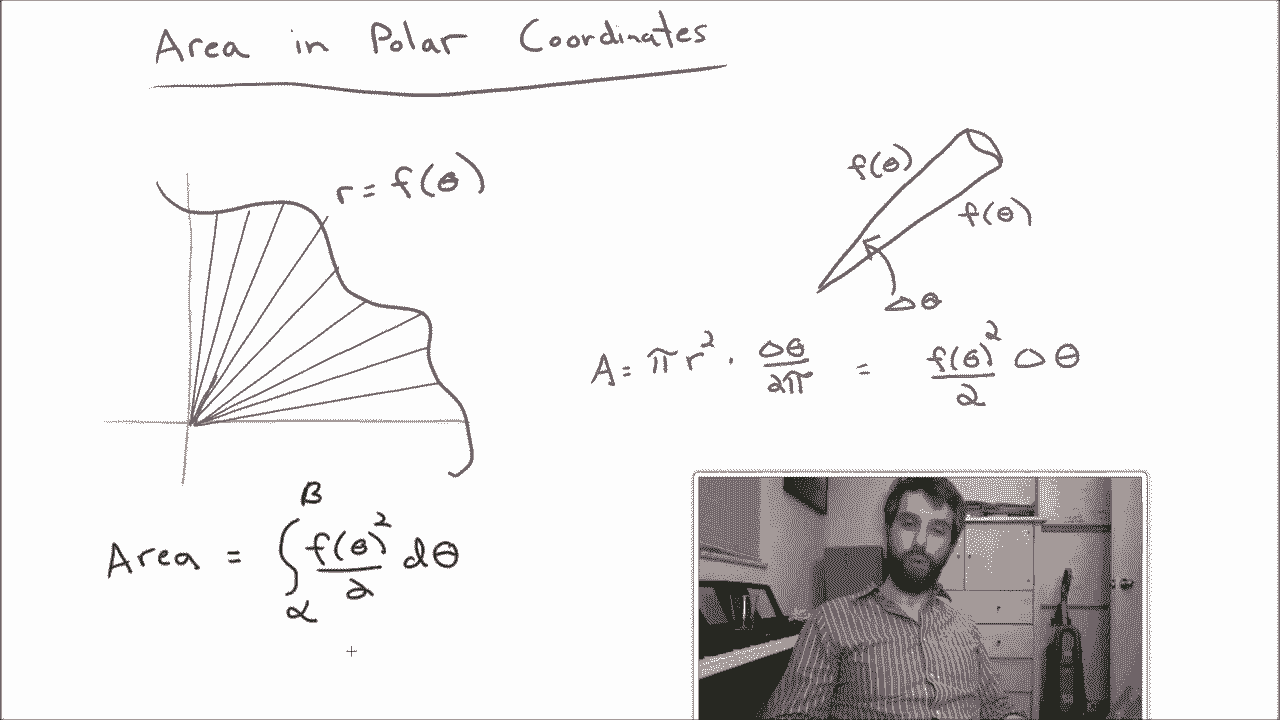 Area in Polar Coordinates
r = f(θ)
f(θ)
f(θ)
Δθ
A = πr² · Δθ/2π = f(θ)²/2 Δθ
Area = ∫_α^β f(θ)²/2 dθ